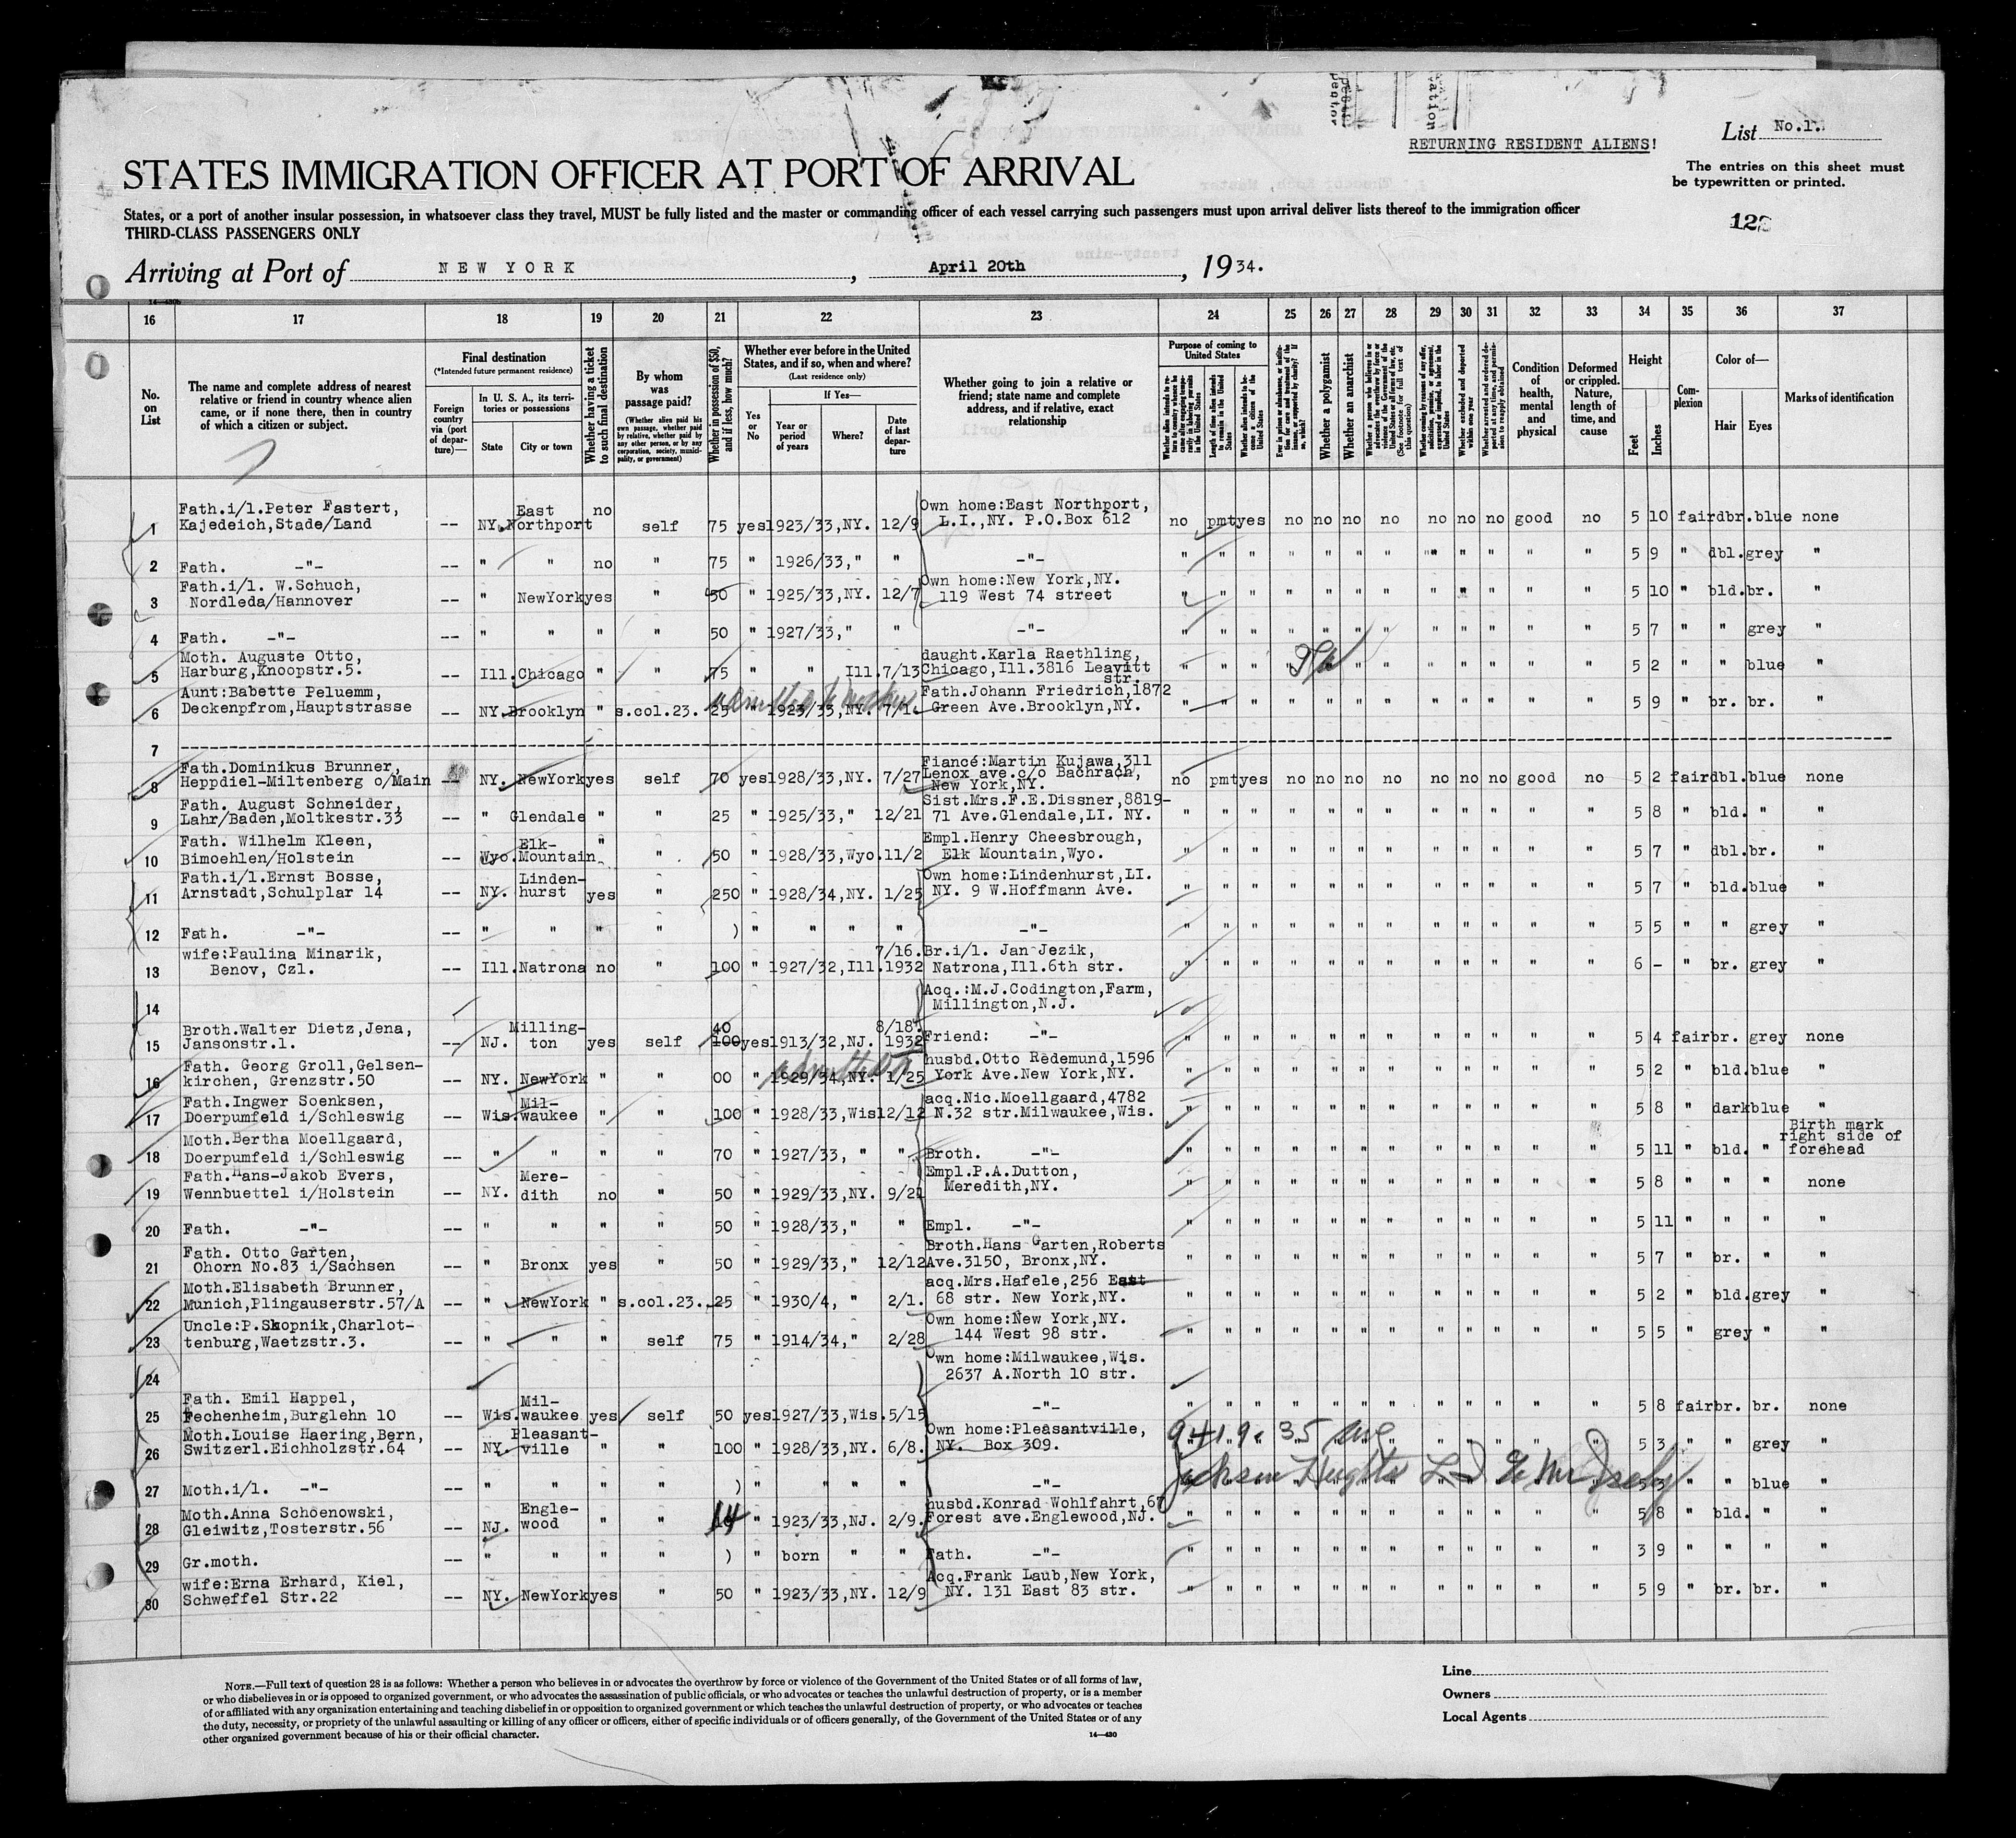 RETURNING RESIDENT ALIENS!
List No.1.
The entries on this sheet must
be typewritten or printed.
STATES IMMIGRATION OFFICER AT PORT OF ARRIVAL
States, or a port of another insular possession, in whatsoever class they travel, MUST be fully listed and the master or commanding officer of each vessel carrying such passengers must upon arrival deliver lists thereof to the immigration officer
THIRD-CLASS PASSENGERS ONLY
Arriving at Port of NEW YORK, April 20th, 1934.
16 17 18 19 20 21 22 23 24 25 26 27 28 29 30 31 32 33 34 35 36 37
No. on List
The name and complete address of nearest relative or friend in country whence alien came, or if none there, then in country of which a citizen or subject.
Final destination
(*Intended future permanent residence)
Foreign country via (port of departure)—
In U. S. A., its territories or possessions
State City or town
Whether having a ticket to such final destination
By whom was passage paid?
(Whether alien paid his own passage, whether paid by relative, whether paid by any other person, or by any corporation, society, municipality, or government)
Whether in possession of $50, and if less, how much?
Whether ever before in the United States, and if so, when and where?
(Last residence only)
Yes or No
If Yes—
Year or period of years
Where?
Date of last departure
Whether going to join a relative or friend; state name and complete address, and if relative, exact relationship
Purpose of coming to United States
Whether a polygamist
Whether an anarchist
Condition of health, mental and physical
Deformed or crippled. Nature, length of time, and cause
Height
Feet Inches
Complexion
Color of—
Hair Eyes
Marks of identification
1 Fath.i/l.Peter Fastert, Kajedeich,Stade/Land -- NY. East Northport no self 75 yes 1923/33,NY. 12/9 Own home:East Northport, L.I.,NY. P.O.Box 612 no pmt yes no no no no no no no good no 5 10 fair dbr. blue none
2 Fath. -"- -- " " no " 75 " 1926/33," " -"- " " " " " " " " " " " " 5 9 " dbl. grey "
3 Fath.i/l. W.Schuch, Nordleda/Hannover -- " NewYork yes " 50 " 1925/33,NY. 12/7 Own home:New York,NY. 119 West 74 street " " " " " " " " " " " " 5 10 " bld. br. "
4 Fath. -"- -- " " " " 50 " 1927/33," " -"- " " " " " " " " " " " " 5 7 " " grey "
5 Moth. Auguste Otto, Harburg,Knoopstr.5. -- Ill. Chicago " " 75 " " Ill. 7/13 daught.Karla Raethling, Chicago,Ill.3816 Leavitt str. " " " " " " " " " " " 5 2 " " blue "
6 Aunt:Babette Peluemm, Deckenpfrom,Hauptstrasse -- NY. Brooklyn " s.col.23. 25 " 1923/33,NY. 7/1 Fath.Johann Friedrich,1872 Green Ave.Brooklyn,NY. " " " " " " " " " " " " 5 9 " br. br. "
7
8 Fath.Dominikus Brunner, Heppdiel-Miltenberg o/Main -- NY. NewYork yes self 70 yes 1928/33,NY. 7/27 Fiancé:Martin Kujawa,311 Lenox ave.c/o Bachrach, New York,NY. no pmt yes no no no no no no no good no 5 2 fair dbl. blue none
9 Fath. August Schneider, Lahr/Baden,Moltkestr.33 -- " Glendale " " 25 " 1925/33," 12/21 Sist.Mrs.F.E.Dissner,8819- 71 Ave.Glendale,LI. NY. " " " " " " " " " " " " 5 8 " bld. " "
10 Fath. Wilhelm Kleen, Bimoehlen/Holstein -- Wyo. Elk-Mountain " " 50 " 1928/33,Wyo. 11/2 Empl.Henry Cheesbrough, Elk Mountain,Wyo. " " " " " " " " " " " " 5 7 " dbl. br. "
11 Fath.i/l.Ernst Bosse, Arnstadt,Schulplar 14 -- NY. Linden-hurst yes " 250 " 1928/34,NY. 1/25 Own home:Lindenhurst,LI. NY. 9 W.Hoffmann Ave. " " " " " " " " " " " " 5 7 " bld. blue "
12 Fath. -"- -- " " " " ) " " " " -"- " " " " " " " " " " " " 5 5 " " grey "
13 wife:Paulina Minarik, Benov, Czl. -- Ill. Natrona no " 100 " 1927/32,Ill. 7/16. 1932 Br.i/l. Jan Jezik, Natrona,Ill.6th str. " " " " " " " " " " " " 6 - " br. grey "
14 Acq.:M.J.Codington,Farm, Millington,N.J.
15 Broth.Walter Dietz,Jena, Jansonstr.1. -- NJ. Milling-ton yes self 40 100 yes 1913/32,NJ. 8/18. 1932 Friend: -"- " " " " " " " " " " " " 5 4 fair br. grey none
16 Fath. Georg Groll,Gelsen-kirchen, Grenzstr.50 -- NY. NewYork " " 00 " 1929/34,NY. 1/25 husbd.Otto Redemund,1596 York Ave.New York,NY. " " " " " " " " " " " " 5 2 " bld. blue "
17 Fath.Ingwer Soenksen, Doerpumfeld i/Schleswig -- Wis. Mil-waukee " " 100 " 1928/33,Wis 12/12 acq.Nic.Moellgaard,4782 N.32 str.Milwaukee,Wis. " " " " " " " " " " " " 5 8 " dark blue "
18 Moth.Bertha Moellgaard, Doerpumfeld i/Schleswig -- " " " " 70 " 1927/33, " " Broth. -"- " " " " " " " " " " " " 5 11 " bld. " Birth mark right side of forehead
19 Fath.Hans-Jakob Evers, Wennbuettel i/Holstein -- NY. Mere-dith no " 50 " 1929/33,NY. 9/21 Empl.P.A.Dutton, Meredith,NY. " " " " " " " " " " " " 5 8 " " " none
20 Fath. -"- -- " " " " 50 " 1928/33," " Empl. -"- " " " " " " " " " " " " 5 11 " " " "
21 Fath. Otto Garten, Ohorn No.83 i/Sachsen -- " Bronx yes " 50 " 1929/33," 12/12 Broth.Hans Garten,Roberts Ave.3150, Bronx,NY. " " " " " " " " " " " " 5 7 " br. " "
22 Moth.Elisabeth Brunner, Munich,Plingauserstr.57/A -- " NewYork " s.col.23. 25 " 1930/4, " 2/1. acq.Mrs.Hafele,256 East 68 str. New York,NY. " " " " " " " " " " " " 5 2 " bld. grey "
23 Uncle:P.Skopnik,Charlot-tenburg,Waetzstr.3. -- " " " self 75 " 1914/34," 2/28 Own home:New York,NY. 144 West 98 str. " " " " " " " " " " " " 5 5 " grey " "
24 Own home:Milwaukee,Wis. 2637 A.North 10 str.
25 Fath. Emil Happel, Fechenheim,Burglehn 10 -- Wis. Mil-waukee yes self 50 yes 1927/33,Wis. 5/15 -"- " " " " " " " " " " " " 5 8 fair br. br. none
26 Moth.Louise Haering,Bern, Switzerl.Eichholzstr.64 -- NY. Pleasant-ville " " 100 " 1928/33,NY. 6/8. Own home:Pleasantville, NY. Box 309. 35 Ave 5 3 " " grey "
27 Moth.i/l. -"- -- " " " " ) " " " " -"- Jackson Heights L I 5 3 " " blue "
28 Moth.Anna Schoenowski, Gleiwitz,Tosterstr.56 -- NJ. Engle-wood " " 14 " 1923/33,NJ. 2/9. husbd.Konrad Wohlfahrt,67 Forest ave.Englewood,NJ. " " " " " " " " " " " " 5 8 " bld. " "
29 Gr.moth. -- " " " " ) " born " " Fath. -"- " " " " " " " " " " " " 3 9 " " " "
30 wife:Erna Erhard, Kiel, Schweffel Str.22 -- NY. NewYork yes " 50 " 1923/33,NY. 12/9 Acq.Frank Laub,New York, NY. 131 East 83 str. " " " " " " " " " " " " 5 9 " br. br. "
NOTE.—Full text of question 28 is as follows: Whether a person who believes in or advocates the overthrow by force or violence of the Government of the United States or of all forms of law,
or who disbelieves in or is opposed to organized government, or who advocates the assassination of public officials, or who advocates or teaches the unlawful destruction of property, or is a member
of or affiliated with any organization entertaining and teaching disbelief in or opposition to organized government or which teaches the unlawful destruction of property, or who advocates or teaches
the duty, necessity, or propriety of the unlawful assaulting or killing of any officer or officers, either of specific individuals or of officers generally, of the Government of the United States or of any
other organized government because of his or their official character.
14—430
Line
Owners
Local Agents